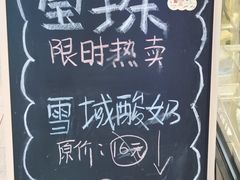 限时热卖
雪域酸奶
原价:16元